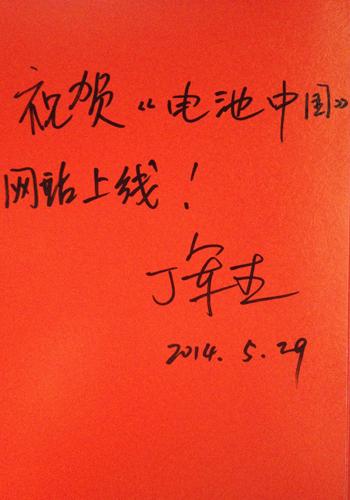 祝贺《电池中国》
网站上线！
2014.5.29